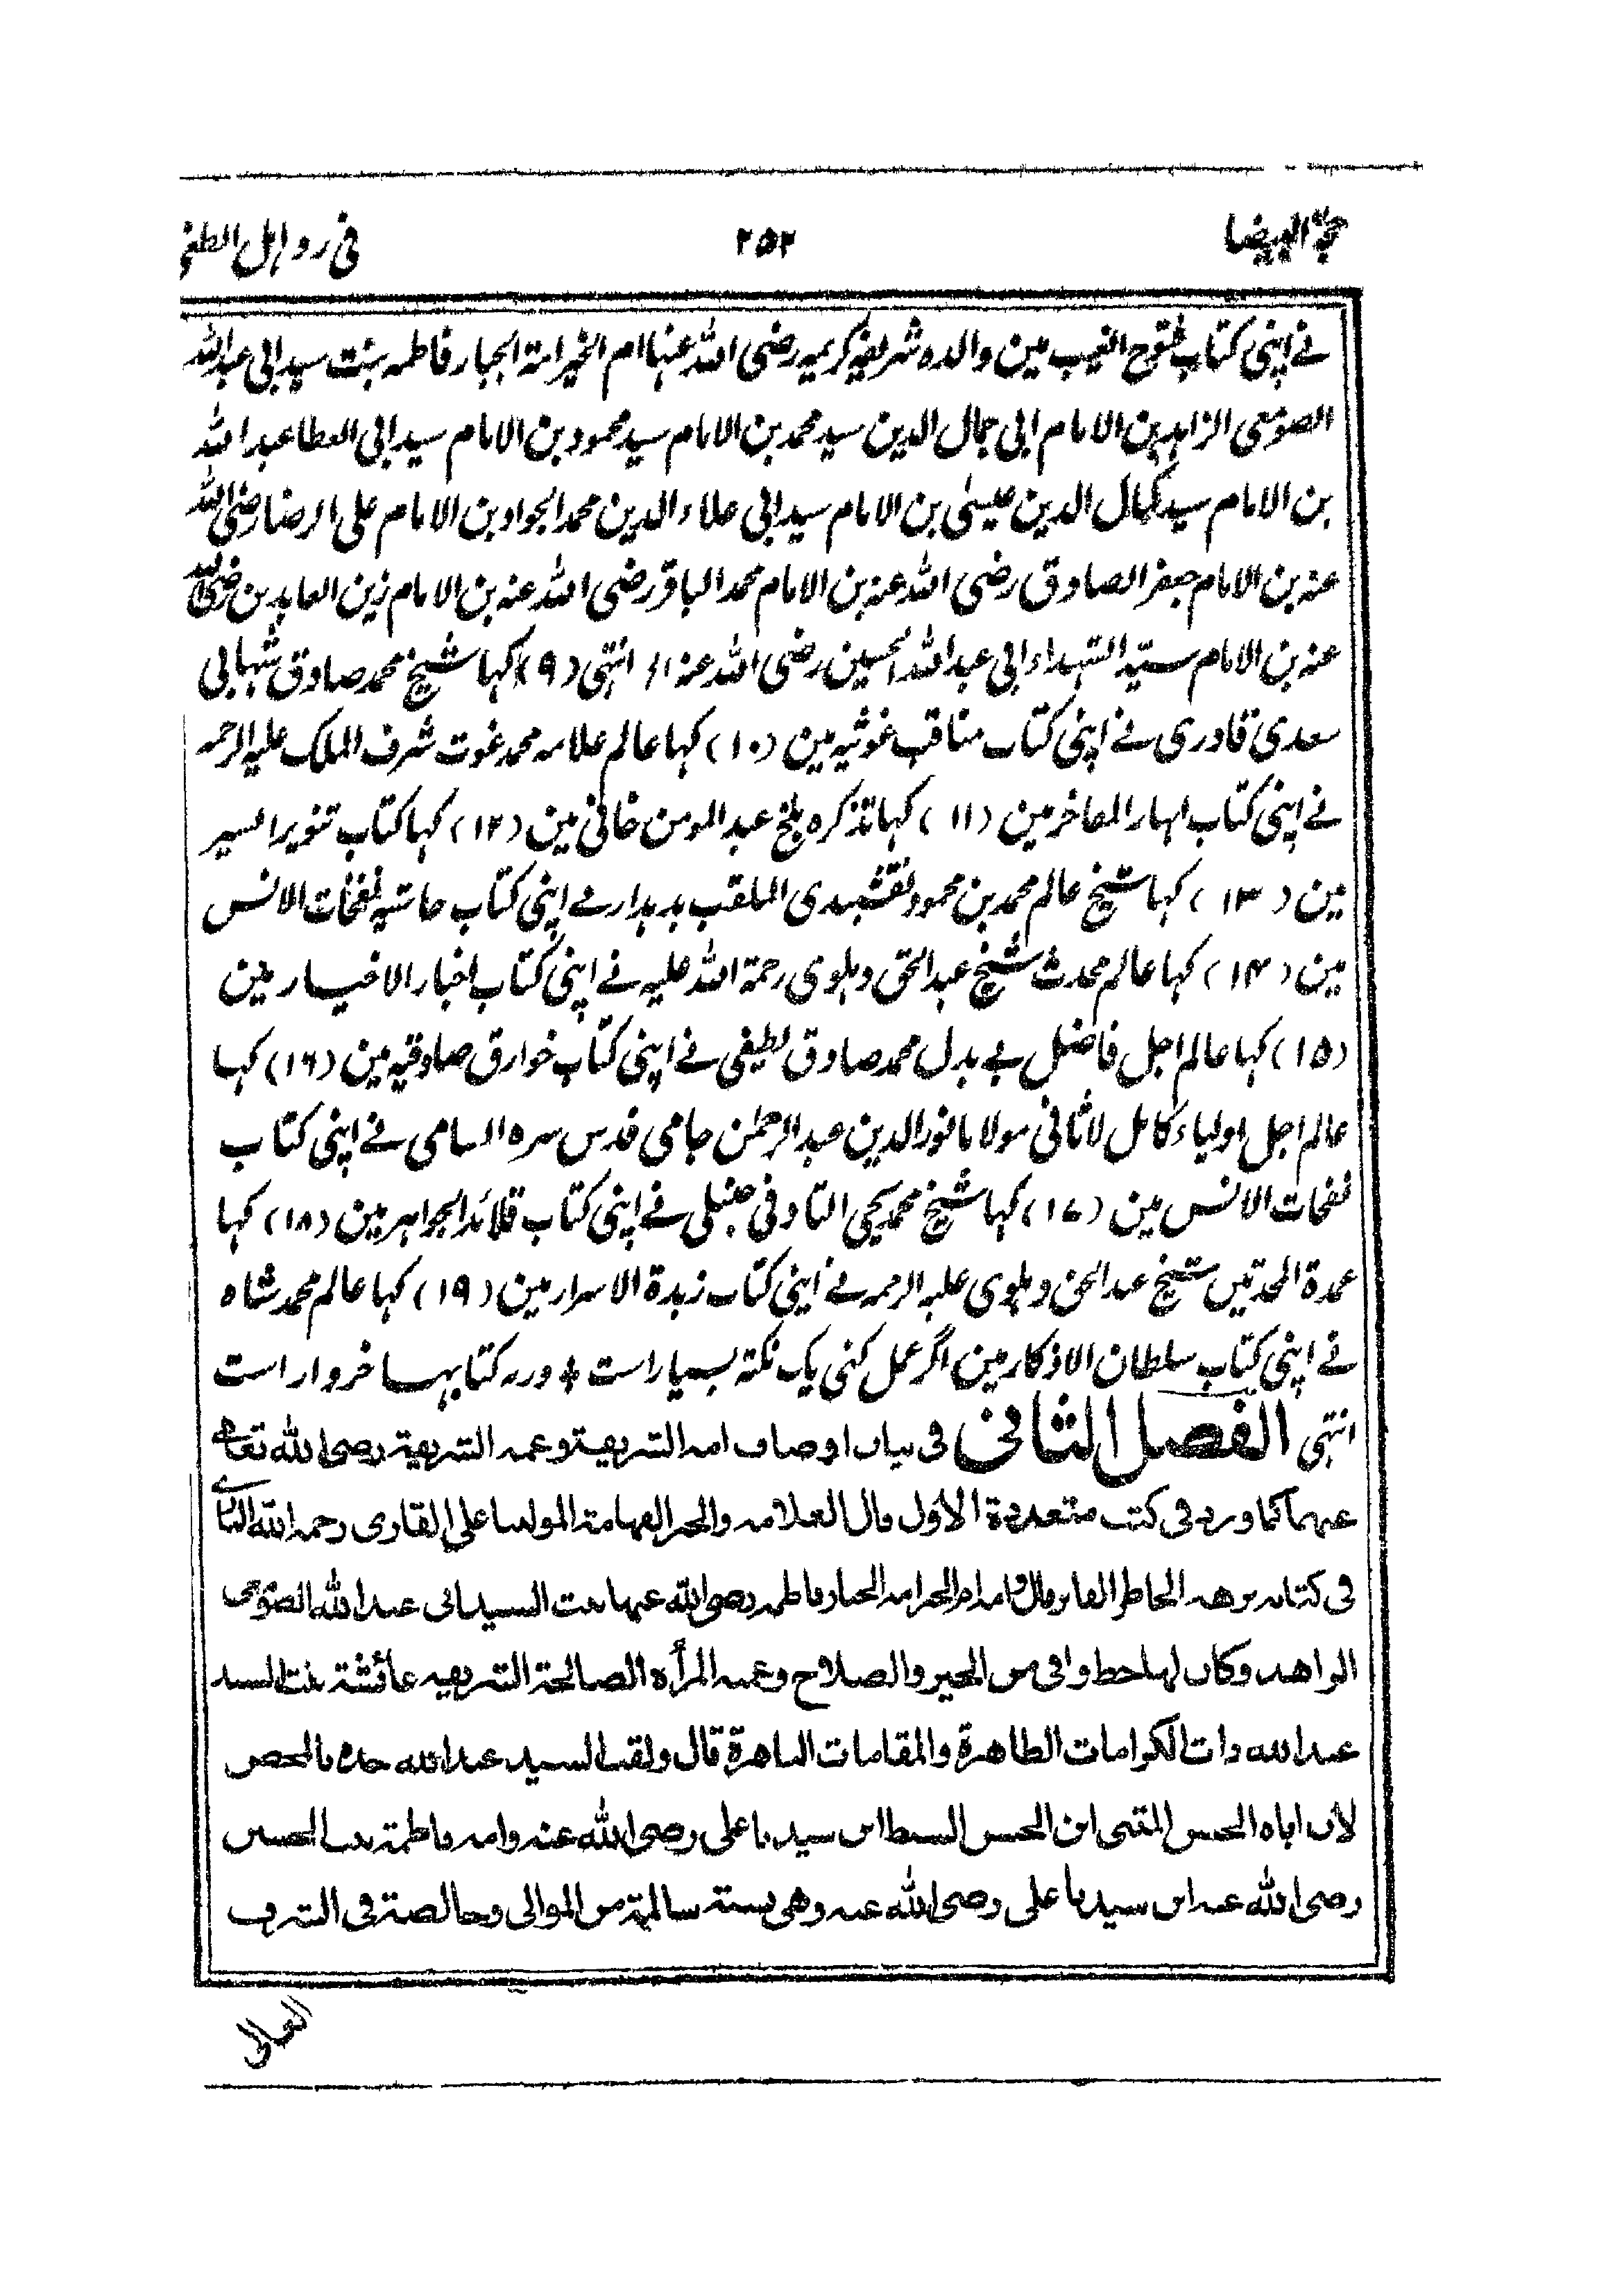 حجۃ البیضا ۲۵۲ فی رد اہل الطغے
نے اپنی کتاب فتوح الغیب مین والدہ شریفہ کریمہ رضی اللہ عنہا ام الخیر امۃ الجبار فاطمہ بنت سید ابی عبداللہ
الصومعی الزاہد بن الامام ابی جمال الدین سید محمد بن الامام سید محمود بن الامام سید ابی العطا عبداللہ
بن الامام سید کمال الدین عیسیٰ بن الامام سید ابی علاء الدین محمد الجواد بن الامام علی الرضا رضی اللہ
عنہ بن الامام جعفر الصادق رضی اللہ عنہ بن الامام محمد الباقر رضی اللہ عنہ بن الامام زین العابدین رضی اللہ
عنہ بن الامام سیّد الشہداء ابی عبداللہ الحسین رضی اللہ عنہ انتہی (۹) کہا شیخ محمد صادق شہابی
سعدی قادری نے اپنی کتاب مناقب غوثیہ مین (۱۰) کہا عالم علامہ محمد غوث شرف الملک علیہ الرحمہ
نے اپنی کتاب انہار المفاخر مین (۱۱) کہا تذکرہ بلخ عبد المومن خانی مین (۱۲) کہا کتاب تنویر السیر
مین (۱۳) کہا شیخ عالم محمد بن محمود نقشبندی الملقب بدیدار نے اپنی کتاب حاشیہ نفحات الانس
مین (۱۴) کہا عالم محدث شیخ عبدالحق دہلوی رحمۃ اللہ علیہ نے اپنی کتاب اخبار الاخیار مین
(۱۵) کہا عالم اجل فاضل بے بدل محمد صادق لطیفی نے اپنی کتاب خوارق صادقیہ مین (۱۶) کہا
عالم اجل اولیاء کامل لاثانی مولانا نور الدین عبدالرحمٰن جامی قدس سرہ السامی نے اپنی کتاب
نفحات الانس مین (۱۷) کہا شیخ محمد یحیی التادفی حنبلی نے اپنی کتاب قلائد الجواہر مین (۱۸) کہا
عمدۃ المحدثین شیخ عبدالحق دہلوی علیہ الرحمہ نے اپنی کتاب زبدۃ الاسرار مین (۱۹) کہا عالم محمد شاہ
نے اپنی کتاب سلطان الاذکار مین اگر عمل کنی یک نکتہ بسیار است + ورنہ کتابہا خروار است
انتہی الفصل الثانی فی بیان اوصاف امه الشریفة وعمته الشریفة رضی الله تعالے
عنهما كما ورد فی كتب متعددة الاول قال العلامه والبحر الفهامة المولنا علی القاری رحمه الله الباری
فی كتابه نزهة الخاطر الفاتر قال وامه ام الخير امة الجبار فاطمه رضی الله عنها بنت السيد ابی عبد الله الصومعی
الزاهد وكان لها حظ وافی من الخير والصلاح وعمته المرأة الصالحة الشريفه عائشة بنت السيد
عبد الله ذات الكرامات الظاهرة والمقامات الباهرة قال ولقب السيد عبد الله جده بالمحض
لان اباه الحسن المثنی ابن الحسن السبط ابن سيدنا علی رضی الله عنه وامه فاطمة بنت الحسين
رضی الله عنه ابن سيدنا علی رضی الله عنه وهی نسبته سالمة من الموالی وخالصة فی الشرف